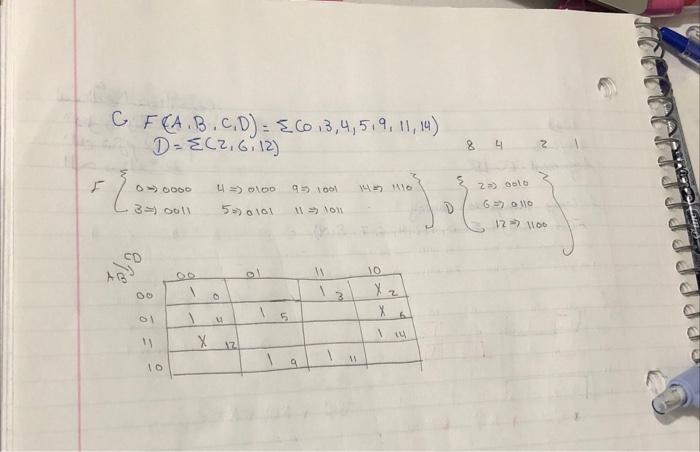 C F(A,B,C,D) = Σ(0,3,4,5,9,11,14)
D = Σ(2,6,12)
8 4 2 1
F { 0 => 0000 4 => 0100 9 => 1001 14 => 1110 } D { 2 => 0010
3 => 0011 5 => 0101 11 => 1011 6 => 0110
12 => 1100 }
CD
AB 00 01 11 10
00 1 0 1 3 X 2
01 1 4 1 5 X 6
11 X 12 1 14
10 1 9 1 11